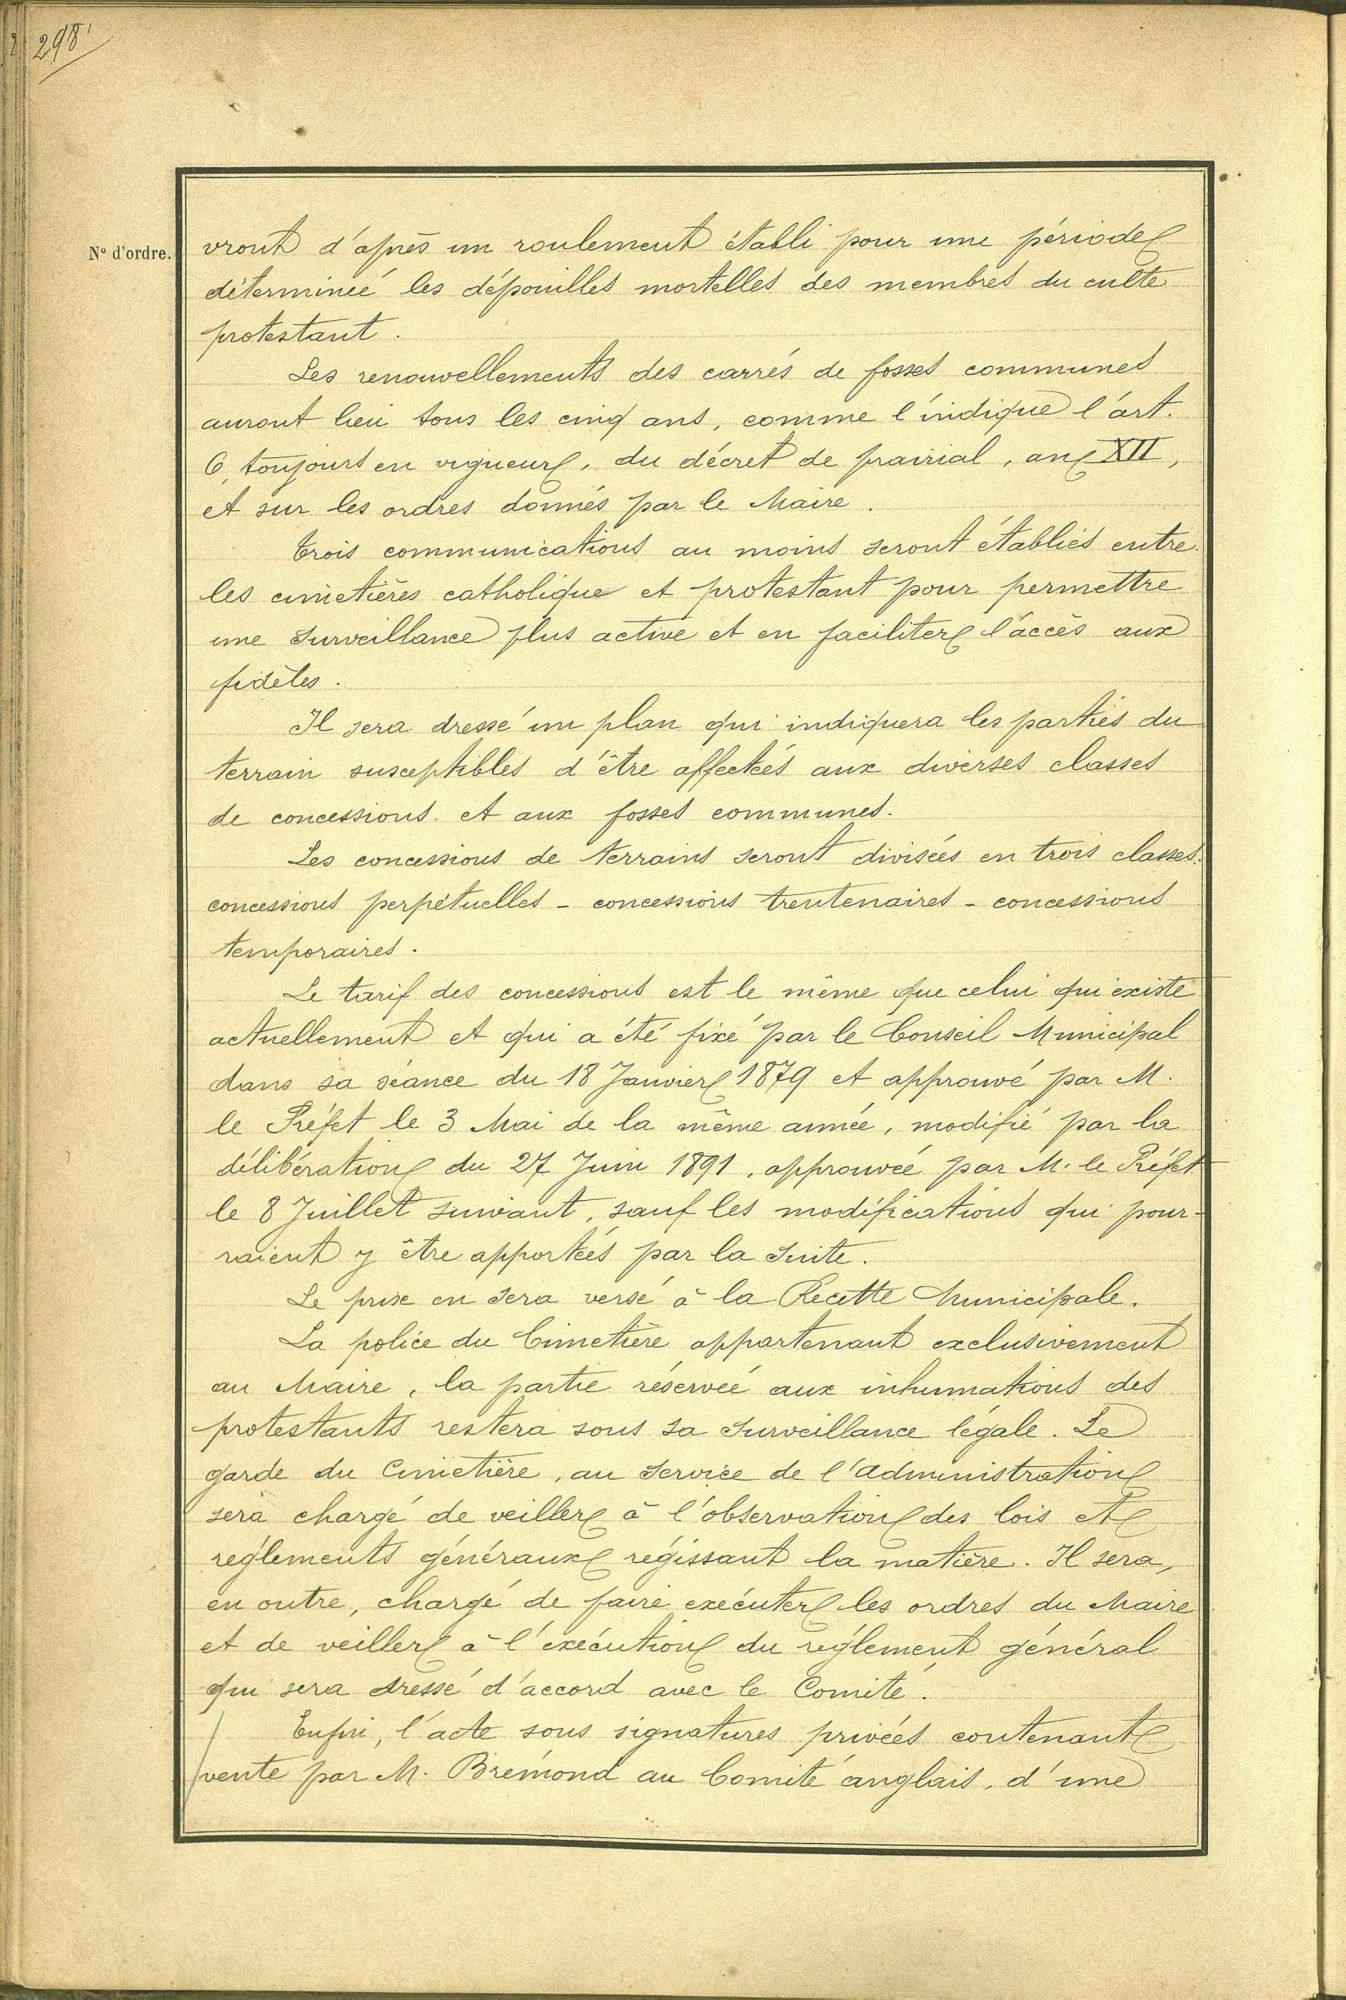 298
N° d'ordre.
vront d'après un roulement établi pour une période
déterminée les dépouilles mortelles des membres du culte
protestant.
Les renouvellements des carrés de fosses communes
auront lieu tous les cinq ans, comme l'indique l'art.
6, toujours en vigueur, du décret de prairial, an XII,
et sur les ordres donnés par le Maire.
Trois communications au moins seront établies entre
les cimetières catholique et protestant pour permettre
une surveillance plus active et en faciliter l'accès aux
fidèles.
Il sera dressé un plan qui indiquera les parties du
terrain susceptibles d'être affectées aux diverses classes
de concessions et aux fosses communes.
Les concessions de terrains seront divisées en trois classes:
concessions perpétuelles - concessions trentenaires - concessions
temporaires.
Le tarif des concessions est le même que celui qui existe
actuellement et qui a été fixé par le Conseil Municipal
dans sa séance du 18 Janvier 1879 et approuvé par M.
le Préfet le 3 Mai de la même année, modifié par la
délibération du 27 Juin 1891, approuvée par M. le Préfet
le 8 Juillet suivant, sauf les modifications qui pour-
raient y être apportées par la suite.
Le prix en sera versé à la Recette Municipale.
La police du Cimetière appartenant exclusivement
au Maire, la partie réservée aux inhumations des
protestants restera sous sa surveillance légale. Le
garde du Cimetière, au service de l'Administration
sera chargé de veiller à l'observation des lois et
règlements généraux régissant la matière. Il sera,
en outre, chargé de faire exécuter les ordres du Maire
et de veiller à l'exécution du règlement général
qui sera dressé d'accord avec le Comité.
Enfin, l'acte sous signatures privées contenant
vente par M. Brémond au Comité anglais, d'une